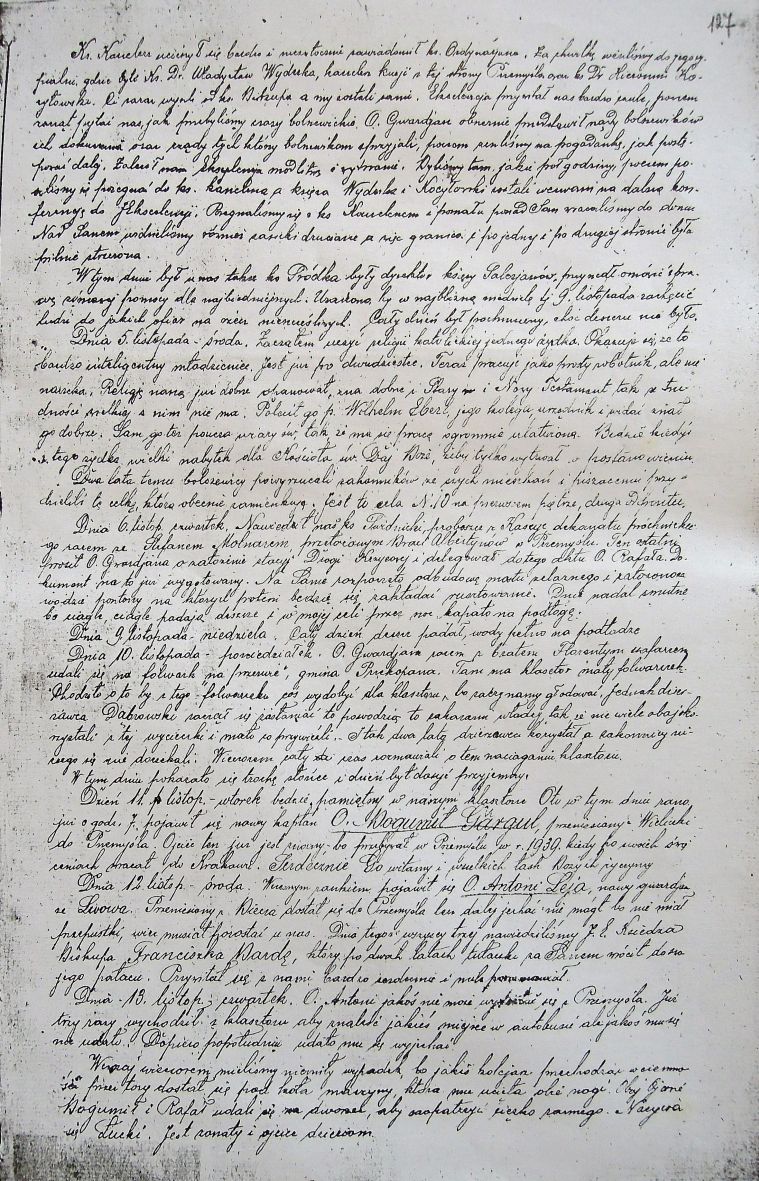 127
Ks. Kanclerz ucieszył się bardzo i niezwłocznie zawiadomił ks. Ordynariusza. Za chwilkę weszliśmy do jego sy-
pialni, gdzie był Ks. Dr. Władysław Wyderka, kanclerz kurji z tej strony Przemyśla, oraz ks. Dr. Hieronim Ko-
cyłowski. Ci zaraz wyszli od ks. Biskupa a my zostali sami. Ekscelencja przywitał nas bardzo czule, poczem
zaczął pytać nas, jak przebyliśmy czasy bolszewickie. O. Gwardjan obszernie przedstawił rządy bolszewików
ich dokuczania oraz rządy tych którzy bolszewikom sprzyjali, poczem zeszliśmy na pogadankę, jak postę-
pować dalej. Zalecał nam Ekscelencja modlitwę i wytrwanie. Byliśmy tam jakie pół godziny, poczem po-
szliśmy się pożegnać do ks. kanclerza, a księża Wyderka i Kocyłowski zostali wezwani na dalszą kon-
ferencję do JEkscelencji. Pożegnaliśmy się z ks. Kanclerzem i pomału ponad San wracaliśmy do domu
Nad Sanem widzieliśmy również zasieki druciane a więc granica i po jednej i po drugiej stronie była
pilnie strzeżona.
W tym dniu był u nas także ks. Prodka były dyrektor księży Salezjanów, przyszedł omówić spra-
wę zimowej pomocy dla najbiedniejszych. Uradzono, by w najbliższą niedzielę tj. 9. listopada zachęcić
ludzi do jakich ofiar na rzecz nieszczęśliwych. Cały dzień był pochmurny, choć deszczu nie było.
Dnia 5. listopada - środa. Zacząłem uczyć religii katolickiej jednego żydka. Okazuje się, że to
bardzo inteligentny młodzieniec. Jest już po dwudziestce. Teraz pracuje jako prosty robotnik, ale nie
narzeka. Religię naszą już dobrze opanował, zna dobrze i Stary i Nowy Testament tak że tru-
dności wielkiej z nim nie ma. Polecił go p. Wilhelm Ebert, jego kolega urzędnik i widać znał
go dobrze. Sam go też poucza wiary św. tak, że ma się pracę ogromnie ułatwioną. Będzie kiedyś
z tego żydka wielki nabytek dla Kościoła św. Daj Boże, żeby tylko wytrwał w postanowieniu.
Dwa lata temu bolszewicy powyrzucali zakonników ze swych mieszkań i piszącemu przy-
dzielili tę celkę, którą obecnie zamieszkuję. Jest to cela N. 10 na pierwszem piętrze, druga
Dnia 6. listop. czwartek. Nawiedził nas ks. proboszcz z dekanatu
go razem ze Stefanem Molnarem, przełożonym Braci Albertynów w Przemyślu. Ten ostatni
prosił O. Gwardjana o założenie stacyj Drogi Krzyżowej i delegował do tego aktu O. Rafała. Do-
kument na to już wygotowany. Na Sanie rozpoczęto odbudowę mostu żelaznego i założono na
wodzie pontony na których potem będzie się zakładać rusztowanie. Dnie nadal smutne
bo ciągle, ciągle padają deszcze i w mojej celi przez noc kapało na podłogę.
Dnia 9. listopada - niedziela. Cały dzień deszcz padał, wody pełno na podłodze
Dnia 10. listopada - poniedziałek. O. Gwardjan razem z bratem Florentym szafarzem
udali się na folwark na gmina Przekopana. Tam ma klasztor mały folwarczek.
Chodziło o to by z tego folwarczku coś wydobyć dla klasztoru, bo zaczynamy głodować. Jednak dzier-
żawca Dąbrowski zaczął się zasłaniać to powodzią, to zakazami władzy, tak że nie wiele obaj sko-
rzystali z tej wycieczki i mało co przywieźli. I tak dwa lata dzierżawca korzystał a zakonnicy ni-
czego się nie doczekali. Wieczorem cały czas rozmawiali o tem naciąganiu klasztoru.
W tym dniu pokazało się trochę słońce i dzień był dosyć przyjemny.
Dzień 11. listop. - wtorek będzie pamiętny w naszym klasztorze. Oto w tym dniu rano,
już o godz. 7. pojawił się nowy kapłan O. Bogumił Gargul, przeniesiony z Wieliczki
do Przemyśla. Ojciec ten już jest znany bo przebywał w Przemyślu w r. 1939, kiedy po swoich świę-
ceniach wracał do Krakowa. Serdecznie Go witamy i wszelkich łask Bożych życzymy
Dnia 12. listop. - środa. Wczesnym rankiem pojawił się O. Antoni Leja, nowy gwardjan
ze Lwowa. Przeniesiony z Biecza dostał się do Przemyśla lecz dalej jechać nie mógł bo nie miał
przepustki, więc musiał pozostać u nas. Dnia tegoż wszyscy trzej nawiedziliśmy J. E. Księdza
Biskupa Franciszka Bardę, który po dwóch latach tułaczki za Sanem wrócił do swo-
jego pałacu. Przywitał się z nami bardzo serdecznie i mile
Dnia 13. listop. czwartek. O. Antoni jakoś nie może się z Przemyśla. Już
trzy razy wychodził z klasztoru aby znaleść jakieś miejsce w autobusie ale jakoś mu się
nie udało. Dopiero popołudniu udało mu się wyjechać.
Wczoraj wieczorem mieliśmy niemiły wypadek, bo jakiś kolejarz przechodząc w ciemno-
ści przez tory dostał się pod koła maszyny, która mu ucięła obie nogi. Obaj Ojcowie
Bogumił i Rafał udali się na dworzec, aby zaopatrzyć ciężko rannego. Nazywa
się Łucki. Jest żonaty i ojciec dzieciom.